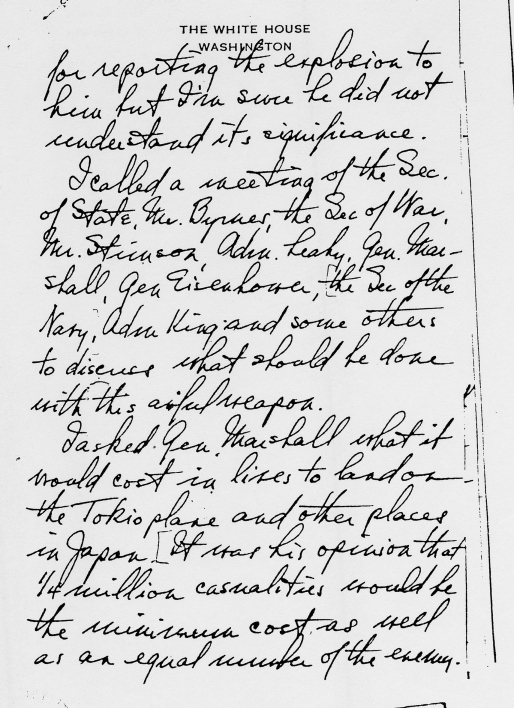 THE WHITE HOUSE
WASHINGTON
for reporting the explosion to
him but I'm sure he did not
understand its significance.
I called a meeting of the Sec.
of State, Mr. Byrnes, the Sec of War,
Mr. Stimson, Adm. Leahy, Gen. Mar-
shall, Gen Eisenhower, [the Sec of the
Navy, Adm King and some others
to discuss what should be done
with this awful weapon.
I asked Gen. Marshall what it
would cost in lives to land on
the Tokio plane and other places
in Japan. [It was his opinion that
1/4 million casualities would be
the minimum cost as well
as an equal number of the enemy.